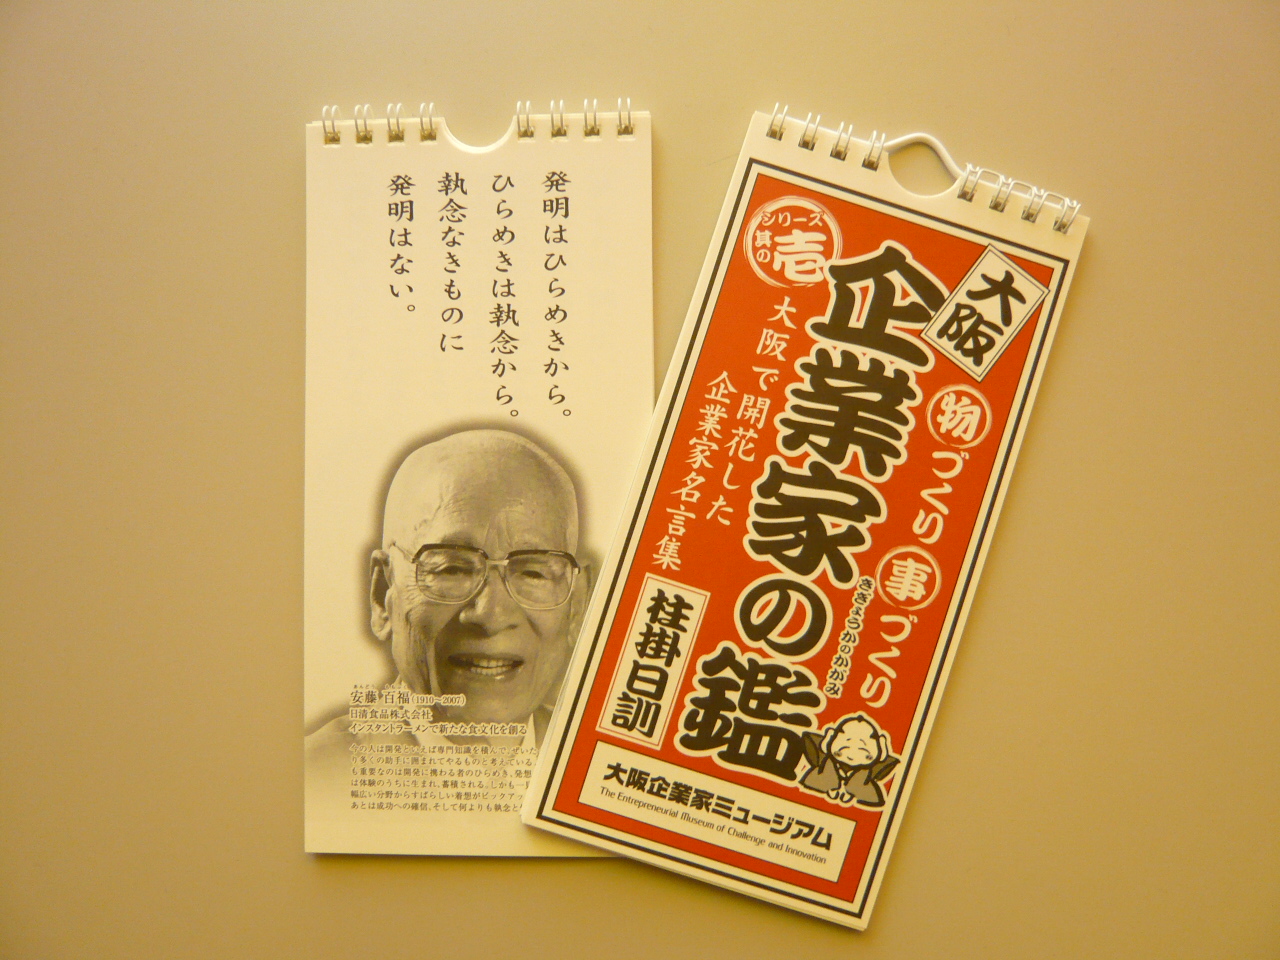 発明はひらめきから。
ひらめきは執念から。
執念なきものに
発明はない。
安藤 百福（1910～2007）
日清食品株式会社
インスタントラーメンで新たな食文化を創る
今の人は開発といえば専門知識を積んで、ぜいた
り多くの助手に囲まれてやるものと考えている。
も重要なのは開発に携わる者のひらめき。発想
は体験のうちに生まれ、蓄積される。しかも一
幅広い分野からすばらしい着想がピックアッ
あとは成功への確信、そして何よりも執念と
シリーズ
其の
壱
大阪
企業家の鑑
ききょうかのかがみ
物づくり事づくり
大阪で開花した
企業家名言集
柱掛日訓
大阪企業家ミュージアム
The Entrepreneurial Museum of Challenge and Innovation